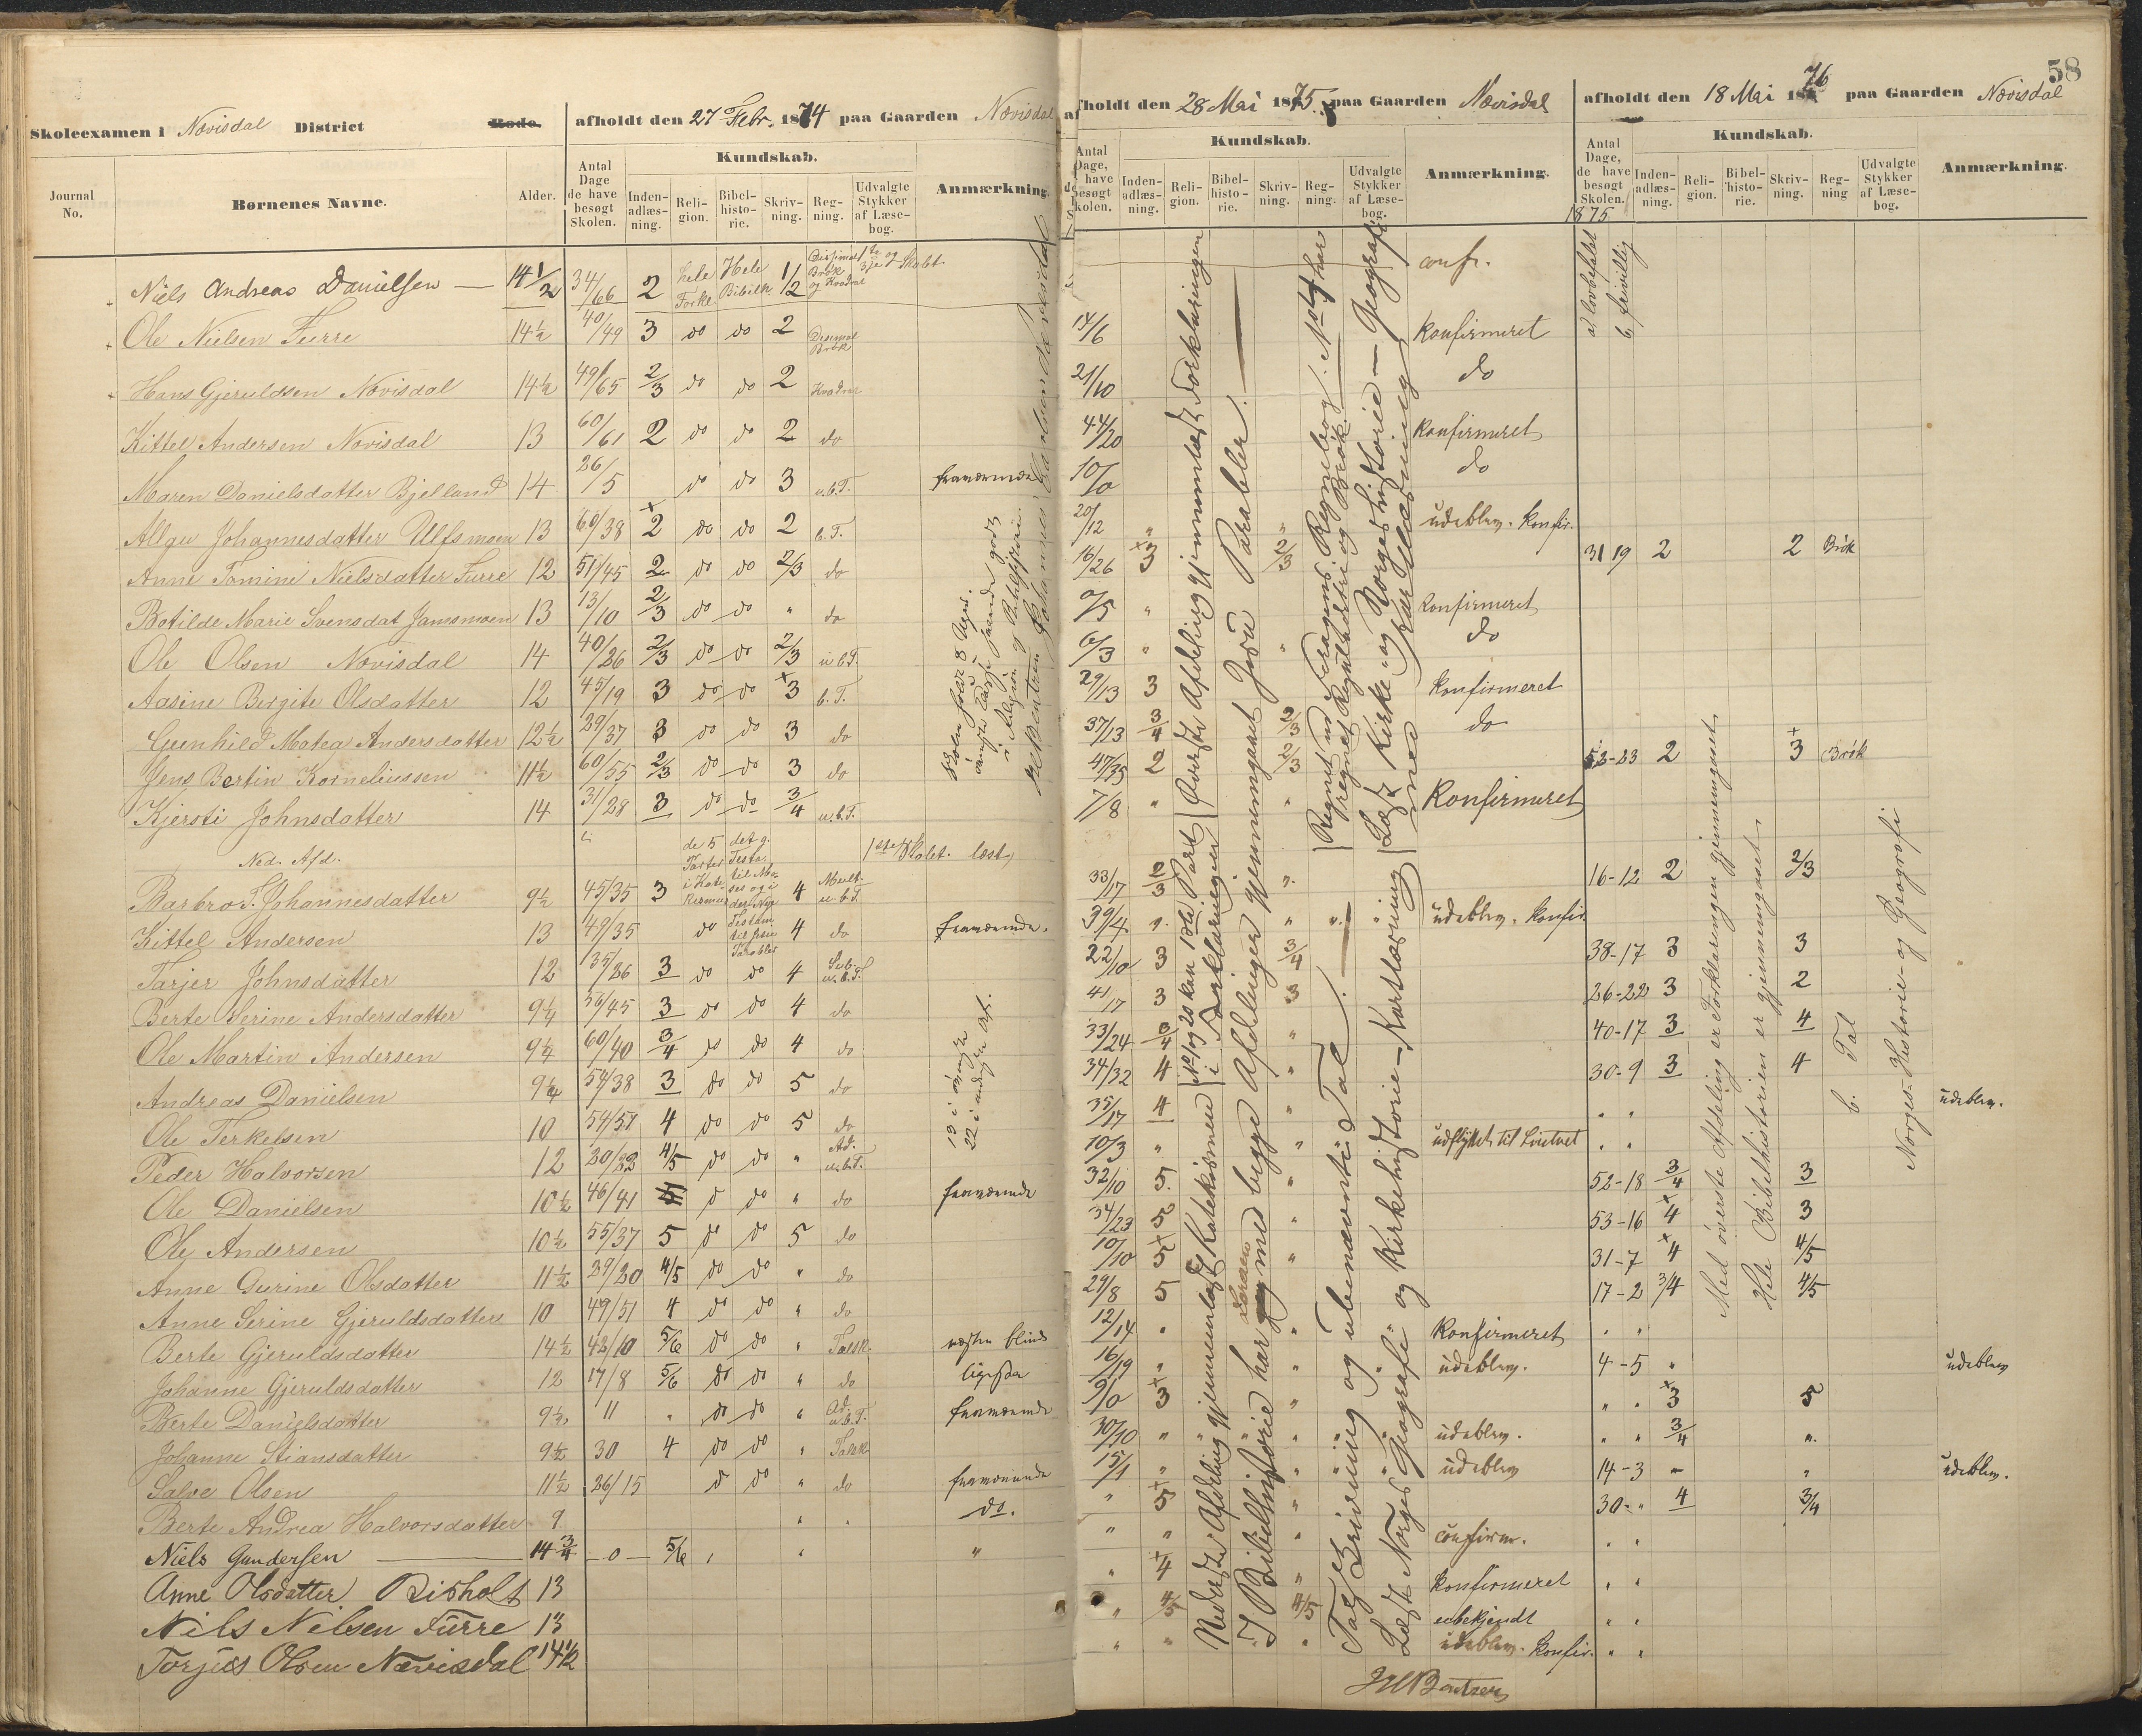 58
Skoleexamen i Nævisdal District Rode. afholdt den 27 Febr. 1874 paa Gaarden Nævisdal
Journal No. Børnenes Navne. Alder. Antal Dage de have besøgt Skolen. Kundskab. Inden-adlæs-ning. Reli-gion. Bibel-histo-rie. Skriv-ning. Reg-ning. Udvalgte Stykker af Læse-bog. Anmærkning.
Niels Andreas Danielsen — 14 1/2 34/66 2 hele Forkl. Hele Bibelh. 1/2 Desimal Brøk og Kvadrat 1ste og 3je Skolet.
Ole Nielsen Furre 14 1/2 40/49 3 do do 2 Desimal Brøk
Hans Gjeruldsen Nævisdal 14 1/2 49/65 2/3 do do 2 Kvadrat
Kittel Andersen Nævisdal 13 60/61 2 do do 2 do
Maren Danielsdatter Bjelland 14 26/5 do do 3 u.b.T. fraværende
Allgu Johannesdatter Ulfsmoen 13 60/38 2 do do 2 b.T.
Anne Tomine Nielsdatter Furre 12 51/45 2 do do 2/3 do
Botilde Marie Svensdat Jamsmoen 13 13/10 2/3 do do " do
Ole Olsen Nævisdal 14 40/26 2/3 do do 2/3 u b.T.
Aasine Bergite Olsdatter 12 45/19 3 do do 3 b.T.
Gunhild Matea Andersdatter 12 1/2 29/37 3 do do 3 do
Jens Bertin Korneliussen 11 1/2 60/55 2/3 do do 3 do
Kjersti Johnsdatter 14 31/28 3 do do 3/4 u.b.T.
Ned. Afd. de 5 Parter det g. Testa. 1ste Skolet. læst
Barbro T. Johannesdatter 9 1/2 45/35 3 4 Mult. u.b.T.
Kittel Andersen 13 49/35 do 4 do fraværende.
Tarjer Johnsdatter 12 35/26 3 do do 4 Sub. u.b.T.
Berte Serine Andersdatter 9 1/4 56/45 3 do do 4 do
Ole Martin Andersen 9 1/4 60/40 3/4 do do 4 do
Andreas Danielsen 9 1/4 54/38 3 do do 5 do
Ole Terkelsen 10 54/57 4 do do 5 do
Peder Halvorsen 12 20/22 4/5 do do " Ad. u.b.T.
Ole Danielsen 10 1/2 46/41 do " do fraværende
Ole Andersen 10 1/2 55/37 5 do do 5 do
Anne Gurine Olsdatter 11 1/2 29/20 4/5 do do " do
Anne Serine Gjeruldsdatter 10 49/51 4 do do " do
Berte Gjeruldsdatter 14 1/2 42/10 5/6 do do " Talsk. næsten blind
Johanne Gjeruldsdatter 12 17/8 5/6 do do " do ligesaa
Berte Danielsdatter 9 1/2 11 " do do " Ad. u.b.T. fraværende
Johanne Stiansdatter 9 1/2 30 4 do do " Talsk
Salve Olsen 11 1/2 26/15 do do " do fraværende
Berte Andrea Halvorsdatter 9 do.
Niels Gundersen 14 3/4 — 0 — 5/6 "
Anne Olsdatter Risholt 13
Nils Nilsen Furre 13
Torjus Olsen Nævisdal 14 1/2
13 i øverste
22 i nederste Af.
fholdt den 28 Mai 1875. paa Gaarden Nævisdal
Antal Dage, have besøgt kolen. Kundskab. Inden-adlæs-ning. Reli-gion. Bibel-histo-rie. Skriv-ning. Reg-ning. Udvalgte Stykker af Læse-bog. Anmærkning.
confr.
14/6 konfirmeret
21/10 do
44/20 konfirmeret
10/0 do
20/12 " " udeblev. konfir.
16/26 3 2/3
0/5 " konfirmeret
6/3 " " do
29/13 3 konfirmeret
37/13 3/4 2/3 do
47/35 2 2/3
7/8 " " Konfirmeret
33/17 2/3 "
39/4 " " " " udeblev. konfir.
22/10 3 3/4
41/17 3 3
33/24 3/4 "
34/32 4 "
35/17 4 "
10/3 " " udflyttet til
32/10 5. "
34/23 5 "
10/10 5 "
29/8 5
12/14 " " Konfirmeret
16/19 " " udeblev.
9/0 3 "
30/10 " " udeblev.
15/1 " " udeblev
" 5 "
" " " confirm.
" 4 " konfirmeret
" 4/5 4/5 ubekjendt
" " " udeblev. konfir.
Øverste Afdeling gjennemlæst Forklaringen
No 1 og 20 kan 1ste Part i Forklaringen
Nederste Afdeling gjennemlæst Katekismen
I Bibelhistorie har Læreren med begge Afdelinger gjennemgaaet Jesu Parabler.
Læst Kirke- og Norgeshistorie — Geografi med Kartlæsning
Talskrivning og ubenævnte Tal.
Læst Norges Geografi og Kirkehistorie — Kartlæsning
afholdt den 18 Mai 1876 paa Gaarden Nævisdal
Antal Dage, de have besøgt Skolen. Kundskab. Inden-adlæs-ning. Reli-gion. Bibel-histo-rie. Skriv-ning. Reg-ning Udvalgte Stykker af Læse-bog. Anmærkning.
1875
a) lovbefalet
b. frivillig
31 19 2 2 Brøk
52-23 2 3 Brøk
16-12 2 2/3
38-17 3 3
26-22 3 2
40-17 3 4
30-9 3 4
" " udeblev.
" "
52-18 3/4 3
53-16 4 3
31-7 4 4/5
17-2 3/4 4/5
" "
4-5 " udeblev
" " 3 5
" " 3/4 "
14-3 - " udeblev.
30-" 4 3/4
" "
" "
" "
" "
Med øverste Afdeling er Forklaringen gjennemgaaet
Hele Bibelhistorien er gjennemgaaet
b. Tal
Norges-Historie- og Geografi